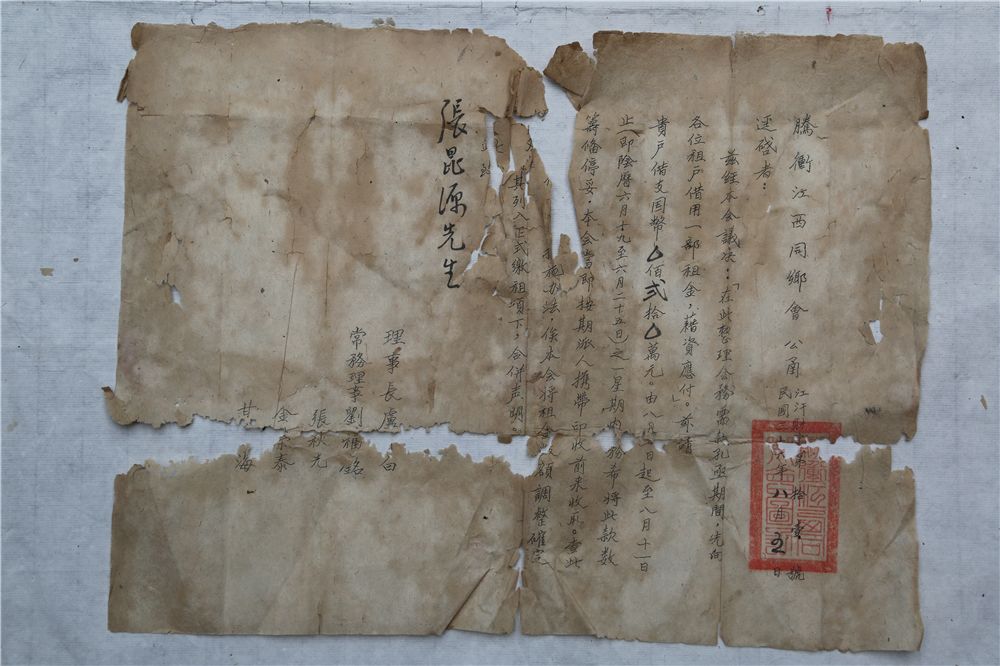 騰衝江西同鄉會公函 江汗財字第拾壹號
民國三十 年八月五日
逕啓者：
茲經本會議决：「在此整理公務需款孔亟期間，先向
各位租戶借用一部租金，藉資應付。」亦請
貴戶借支国幣△佰弍拾△萬元。由八月 日起至八月十一日
止（即陰曆六月十九至六月二十五日）之一星期内，務希将此款数
籌備停妥，本会當即按期派人携帶印收前来收取。查此
措施办法，俟本会将租金 額調整確定
其列入正式繳租項下，合併声明。
此
張昆源先生
理事長盧 白
常務理事劉福銘
張秋先
金 泰
甘 海